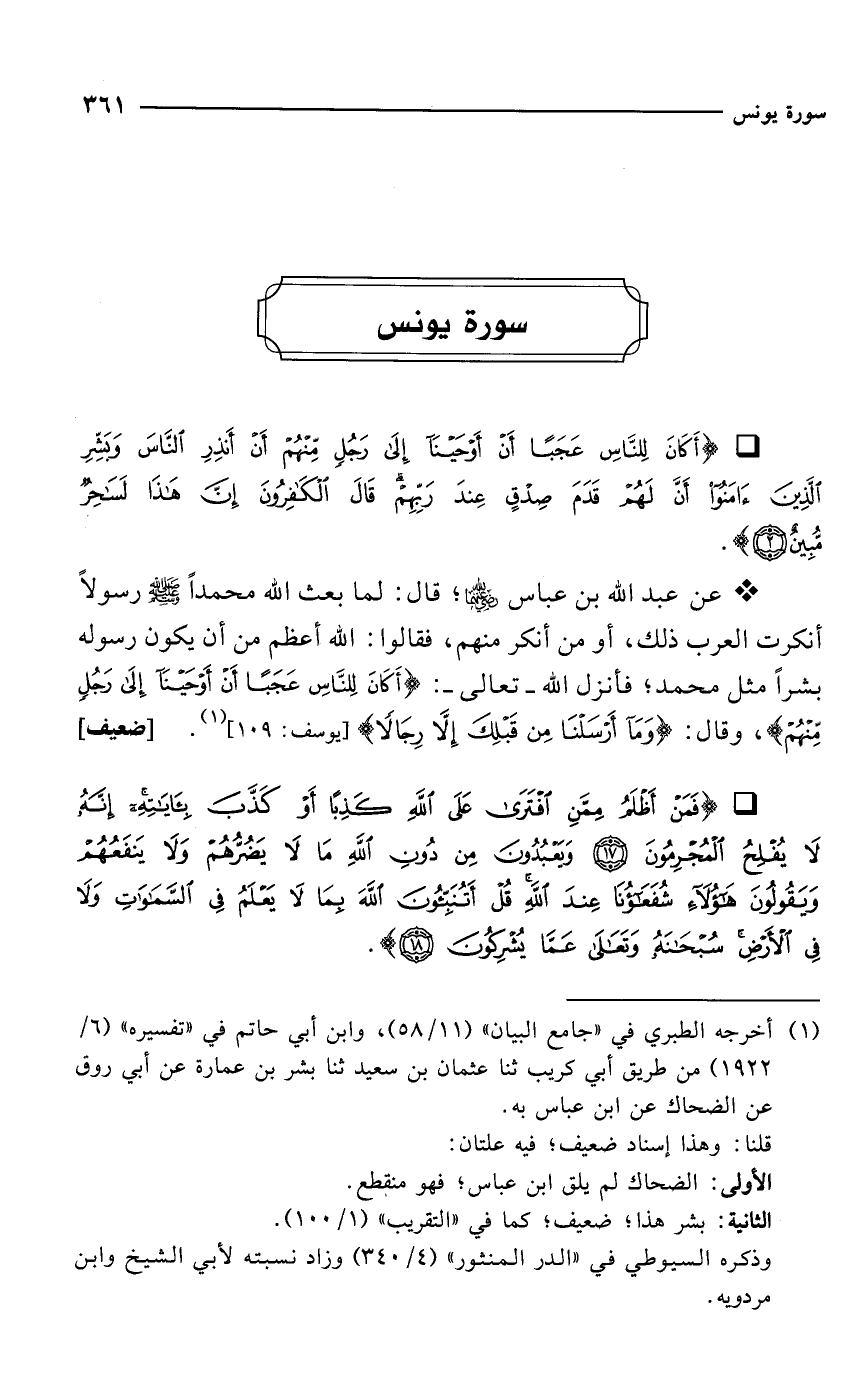 سورة يونس ٣٦١
سورة يونس
❑ ﴿أَكَانَ لِلنَّاسِ عَجَبًا أَنْ أَوْحَيْنَآ إِلَىٰ رَجُلٍ مِّنْهُمْ أَنْ أَنذِرِ ٱلنَّاسَ وَبَشِّرِ
ٱلَّذِينَ ءَامَنُوٓا۟ أَنَّ لَهُمْ قَدَمَ صِدْقٍ عِندَ رَبِّهِمْ ۗ قَالَ ٱلْكَٰفِرُونَ إِنَّ هَٰذَا لَسَٰحِرٌ
مُّبِينٌ ۝٢﴾.
❖ عن عبد الله بن عباس رضي الله عنهما؛ قال: لما بعث الله محمداً ﷺ رسولاً
أنكرت العرب ذلك، أو من أنكر منهم، فقالوا: الله أعظم من أن يكون رسوله
بشراً مثل محمد؛ فأنزل الله ـ تعالى ـ: ﴿أَكَانَ لِلنَّاسِ عَجَبًا أَنْ أَوْحَيْنَآ إِلَىٰ رَجُلٍ
مِّنْهُمْ﴾، وقال: ﴿وَمَآ أَرْسَلْنَا مِن قَبْلِكَ إِلَّا رِجَالًا﴾ [يوسف: ١٠٩](١). [ضعيف]
❑ ﴿فَمَنْ أَظْلَمُ مِمَّنِ ٱفْتَرَىٰ عَلَى ٱللَّهِ كَذِبًا أَوْ كَذَّبَ بِـَٔايَٰتِهِۦٓ ۚ إِنَّهُۥ
لَا يُفْلِحُ ٱلْمُجْرِمُونَ ۝١٧ وَيَعْبُدُونَ مِن دُونِ ٱللَّهِ مَا لَا يَضُرُّهُمْ وَلَا يَنفَعُهُمْ
وَيَقُولُونَ هَٰٓؤُلَآءِ شُفَعَٰٓؤُنَا عِندَ ٱللَّهِ ۚ قُلْ أَتُنَبِّـُٔونَ ٱللَّهَ بِمَا لَا يَعْلَمُ فِى ٱلسَّمَٰوَٰتِ وَلَا
فِى ٱلْأَرْضِ ۚ سُبْحَٰنَهُۥ وَتَعَٰلَىٰ عَمَّا يُشْرِكُونَ ۝١٨﴾.
(١) أخرجه الطبري في «جامع البيان» (١١/ ٥٨)، وابن أبي حاتم في «تفسيره» (٦/
١٩٢٢) من طريق أبي كريب ثنا عثمان بن سعيد ثنا بشر بن عمارة عن أبي روق
عن الضحاك عن ابن عباس به.
قلنا: وهذا إسناد ضعيف؛ فيه علتان:
الأولى: الضحاك لم يلق ابن عباس؛ فهو منقطع.
الثانية: بشر هذا؛ ضعيف؛ كما في «التقريب» (١/ ١٠٠).
وذكره السيوطي في «الدر المنثور» (٤/ ٣٤٠) وزاد نسبته لأبي الشيخ وابن
مردويه.